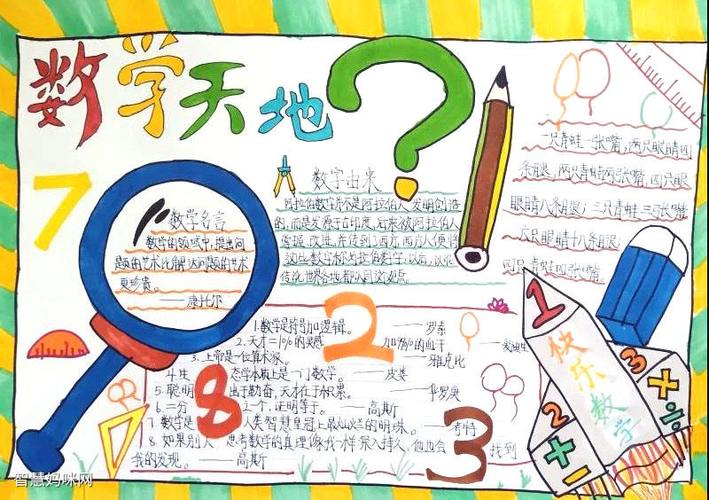 数学天地
?
7
数学名言
数学的领域中,提出问
题的艺术比解答问题的艺术
更珍贵。
——康托尔
数字由来
阿拉伯数字并不是阿拉伯人发明创造
的,而是发源于古印度,后来被阿拉伯人
掌握、改进,并传到了西方,西方人便将
这些数字称为阿拉伯数字,以后,以讹
传讹,世界各地都认同这个
一只青蛙一张嘴,两只眼睛四
条腿,两只青蛙两张嘴,四只眼
睛八条腿;三只青蛙三张嘴
六只眼睛十八条腿;
四只青蛙四张嘴
1.数学是符号加逻辑。——罗素
2.天才=1%的灵感 加99%的血汗
3.上帝是一位算术家。——雅克比
4.生 态学本质上是一门数学。——皮娄
5.聪明 出于勤奋,天才在于积累。——华罗庚
6.一分 2个,证明等于。——高斯
7.数学是 人类智慧皇冠上最灿烂的明珠。——考特
8.如果别人 思考数学的真理像我一样深入持久,他也会 找到
我的发现。——高斯
2
8
3
1
快乐数学
2+1
3×÷
智慧妈咪网